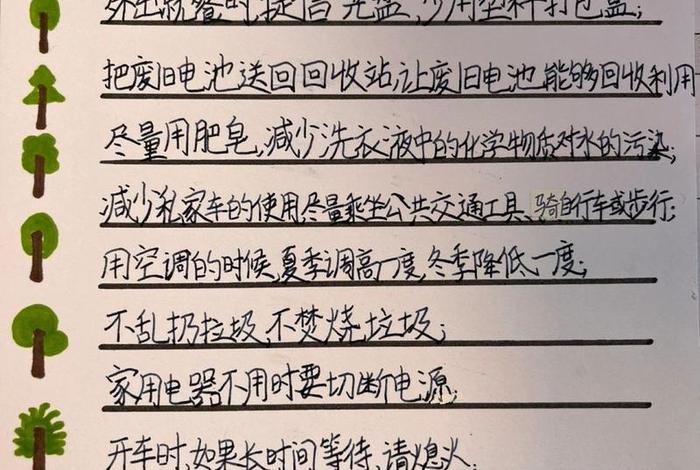 外出就餐时,提倡"光盘",少用塑料打包盒;
把废旧电池送回回收站,让废旧电池能够回收利用
尽量用肥皂,减少洗衣液中的化学物质对水的污染;
减少私家车的使用,尽量乘坐公共交通工具、骑自行车或步行;
用空调的时候,夏季调高一度,冬季降低一度;
不乱扔垃圾,不焚烧垃圾;
家用电器不用时要切断电源;
开车时,如果长时间等待,请熄火.